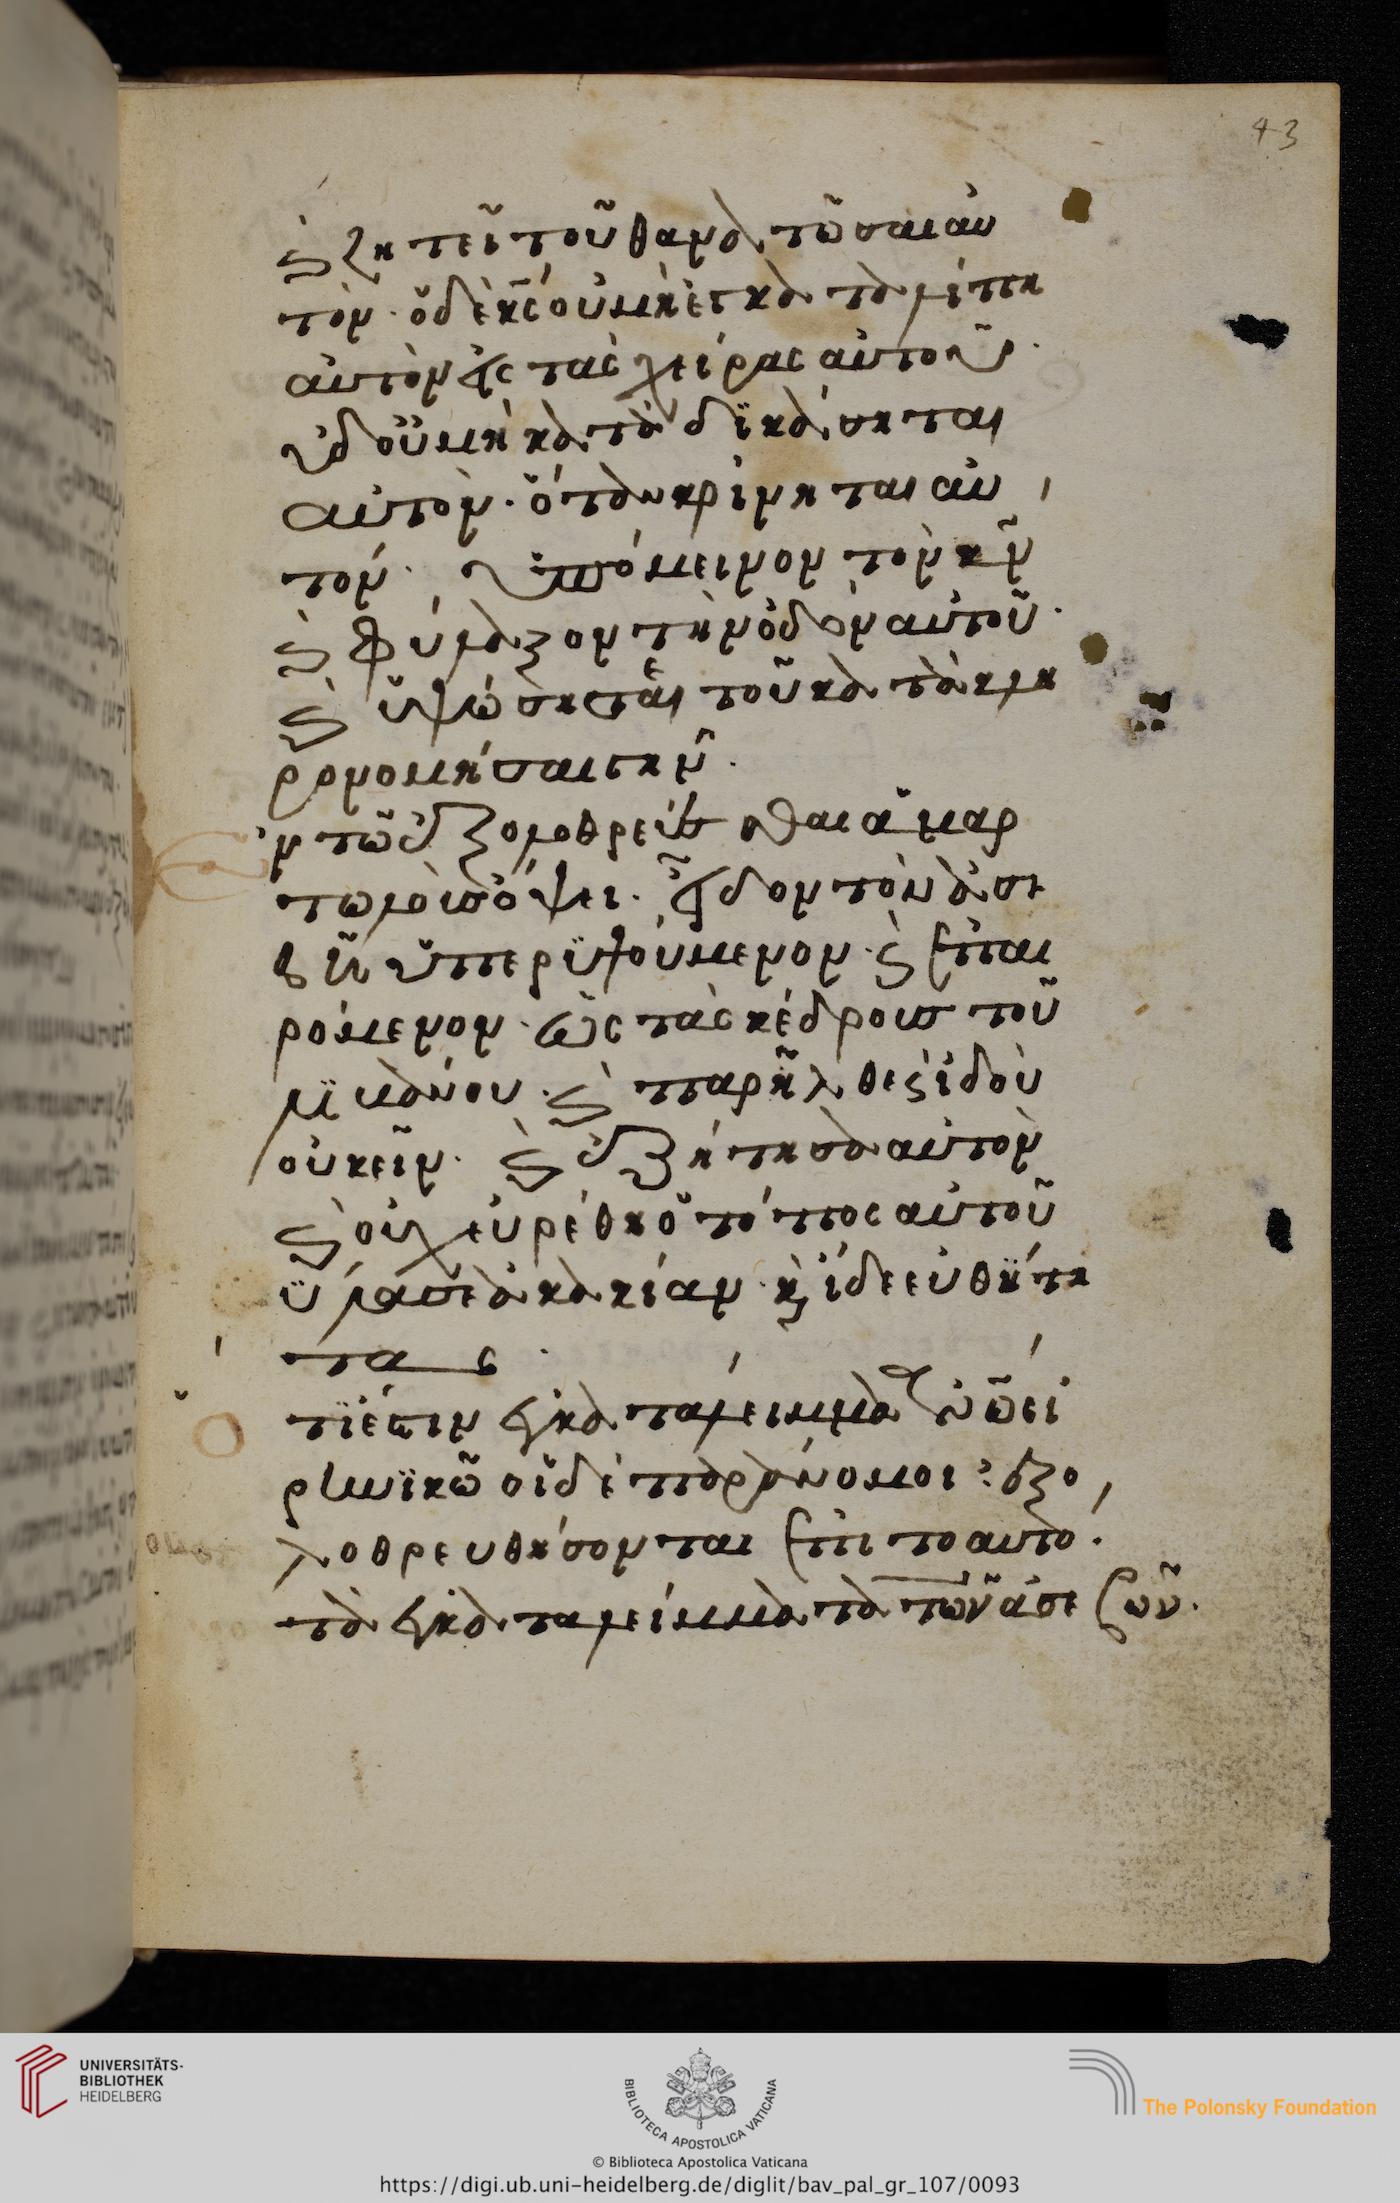 43
ϛ ζητεῖ τοῦ θανα τῶσαι αυ
τὸν. ὁ δὲ κς οὐ μὴ ἐγκατα λίπη
αὐτὸν εἰς τὰς χεῖρας αὐτοῦ.
οὐδ οὐ μὴ κατὰ δϊκάσηται
αὐτὸν. ὅταν κρίνηται αὐ
τόν. ὑπόμεινον τὸν κν
ϛ φύλαξον τὴν ὁδὸν αὐτοῦ.
ϛ ὑψώσει σε τοῦ κατα κλη
ρονομήσαι γην.
ἐν τῶ ἐξολοθρεύεσθαι ἁμαρ
τωλοὺς ὄψει. εἶδον τὸν ἀσε
βῆ ὑπερϋψούμενον. ϛ ἐπαι
ρόμενον. ὡς τὰς κέδρους τοῦ
λϊβάνου. ϛ παρῆλθε ϛ ἰδοὺ
οὐκ εῖν. ϛ ἐζήτησα αὐτὸν
ϛ οὐχ εὑρέθη ὁ τόπος αὐτοῦ
ϋλασε ἀκακίαν. κ ἴδε εὐθήτη
τας.
τϊ ἐστιν ἐγκατάλειμμα ἀνῶ εἰ
ρινϊκῶ οἱ δὲ παράνομοι ἐξο
λοθρευθήσονται ἐπι το αυτὸ.
τὰ ἐγκαταλείμματα τῶν ἀσεβῶν.
UNIVERSITÄTS-
BIBLIOTHEK
HEIDELBERG
BIBLIOTECA APOSTOLICA VATICANA
The Polonsky Foundation
© Biblioteca Apostolica Vaticana
https://digi.ub.uni-heidelberg.de/diglit/bav_pal_gr_107/0093